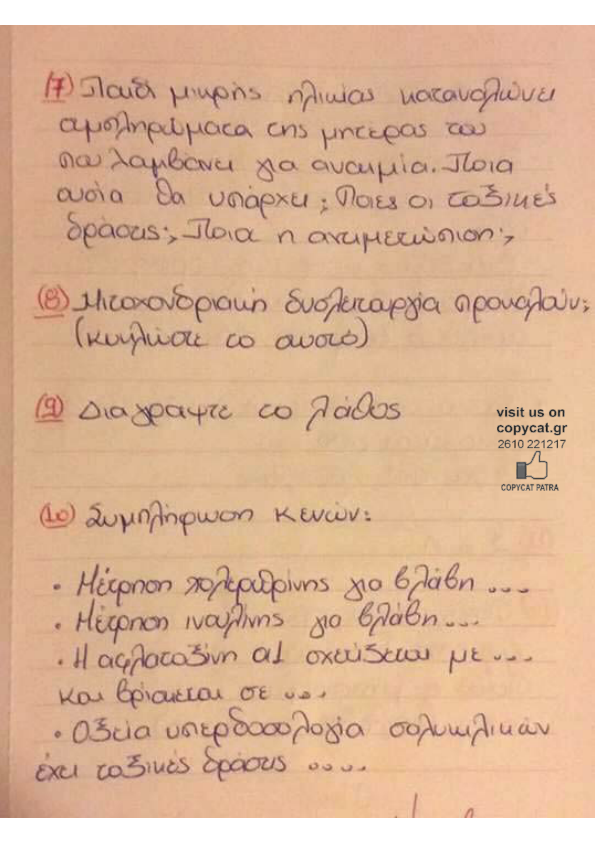 (7) Παιδί μικρής ηλικίας καταναλώνει
συμπληρώματα της μητέρας του
που λαμβάνει για αναιμία. Ποια
ουσία θα υπάρχει; Ποιες οι τοξικές
δράσεις; Ποια η αντιμετώπιση;
(8) Μιτοχονδριακή δυσλειτουργία προκαλούν;
(κυκλώστε το σωστό)
(9) Διαγράψτε το λάθος
visit us on
copycat.gr
2610 221217
COPYCAT PATRA
(10) Συμπλήρωση κενών:
• Μέτρηση χολερυθρίνης για βλάβη ....
• Μέτρηση ινουλίνης για βλάβη ....
• Η αφλατοξίνη α1 σχετίζεται με ....
και βρίσκεται σε ....
• Οξεία υπερδοσολογία σαλυκιλικών
έχει τοξικές δράσεις .....